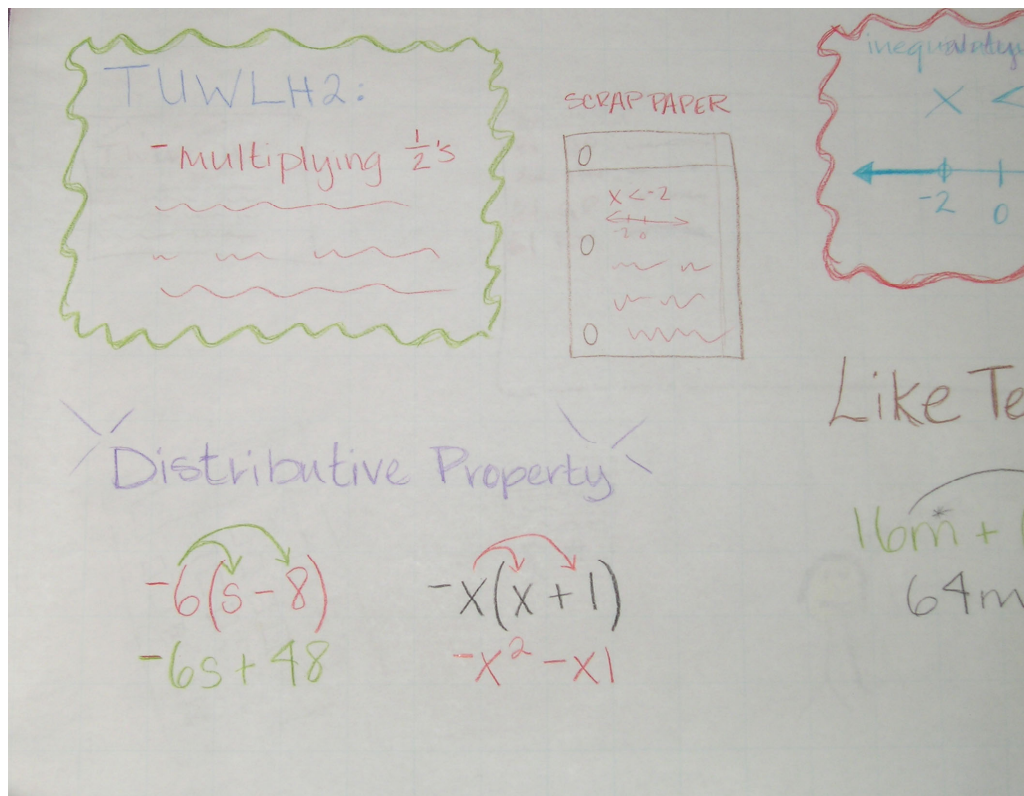 TUWLH2:
- Multiplying 1/2's
SCRAP PAPER
x < -2
-2 0
inequalaty
x <
-2 0
Distributive Property
-6(s-8)
-6s+48
-x(x+1)
-x² -x1
Like Te
16m + 1
64m